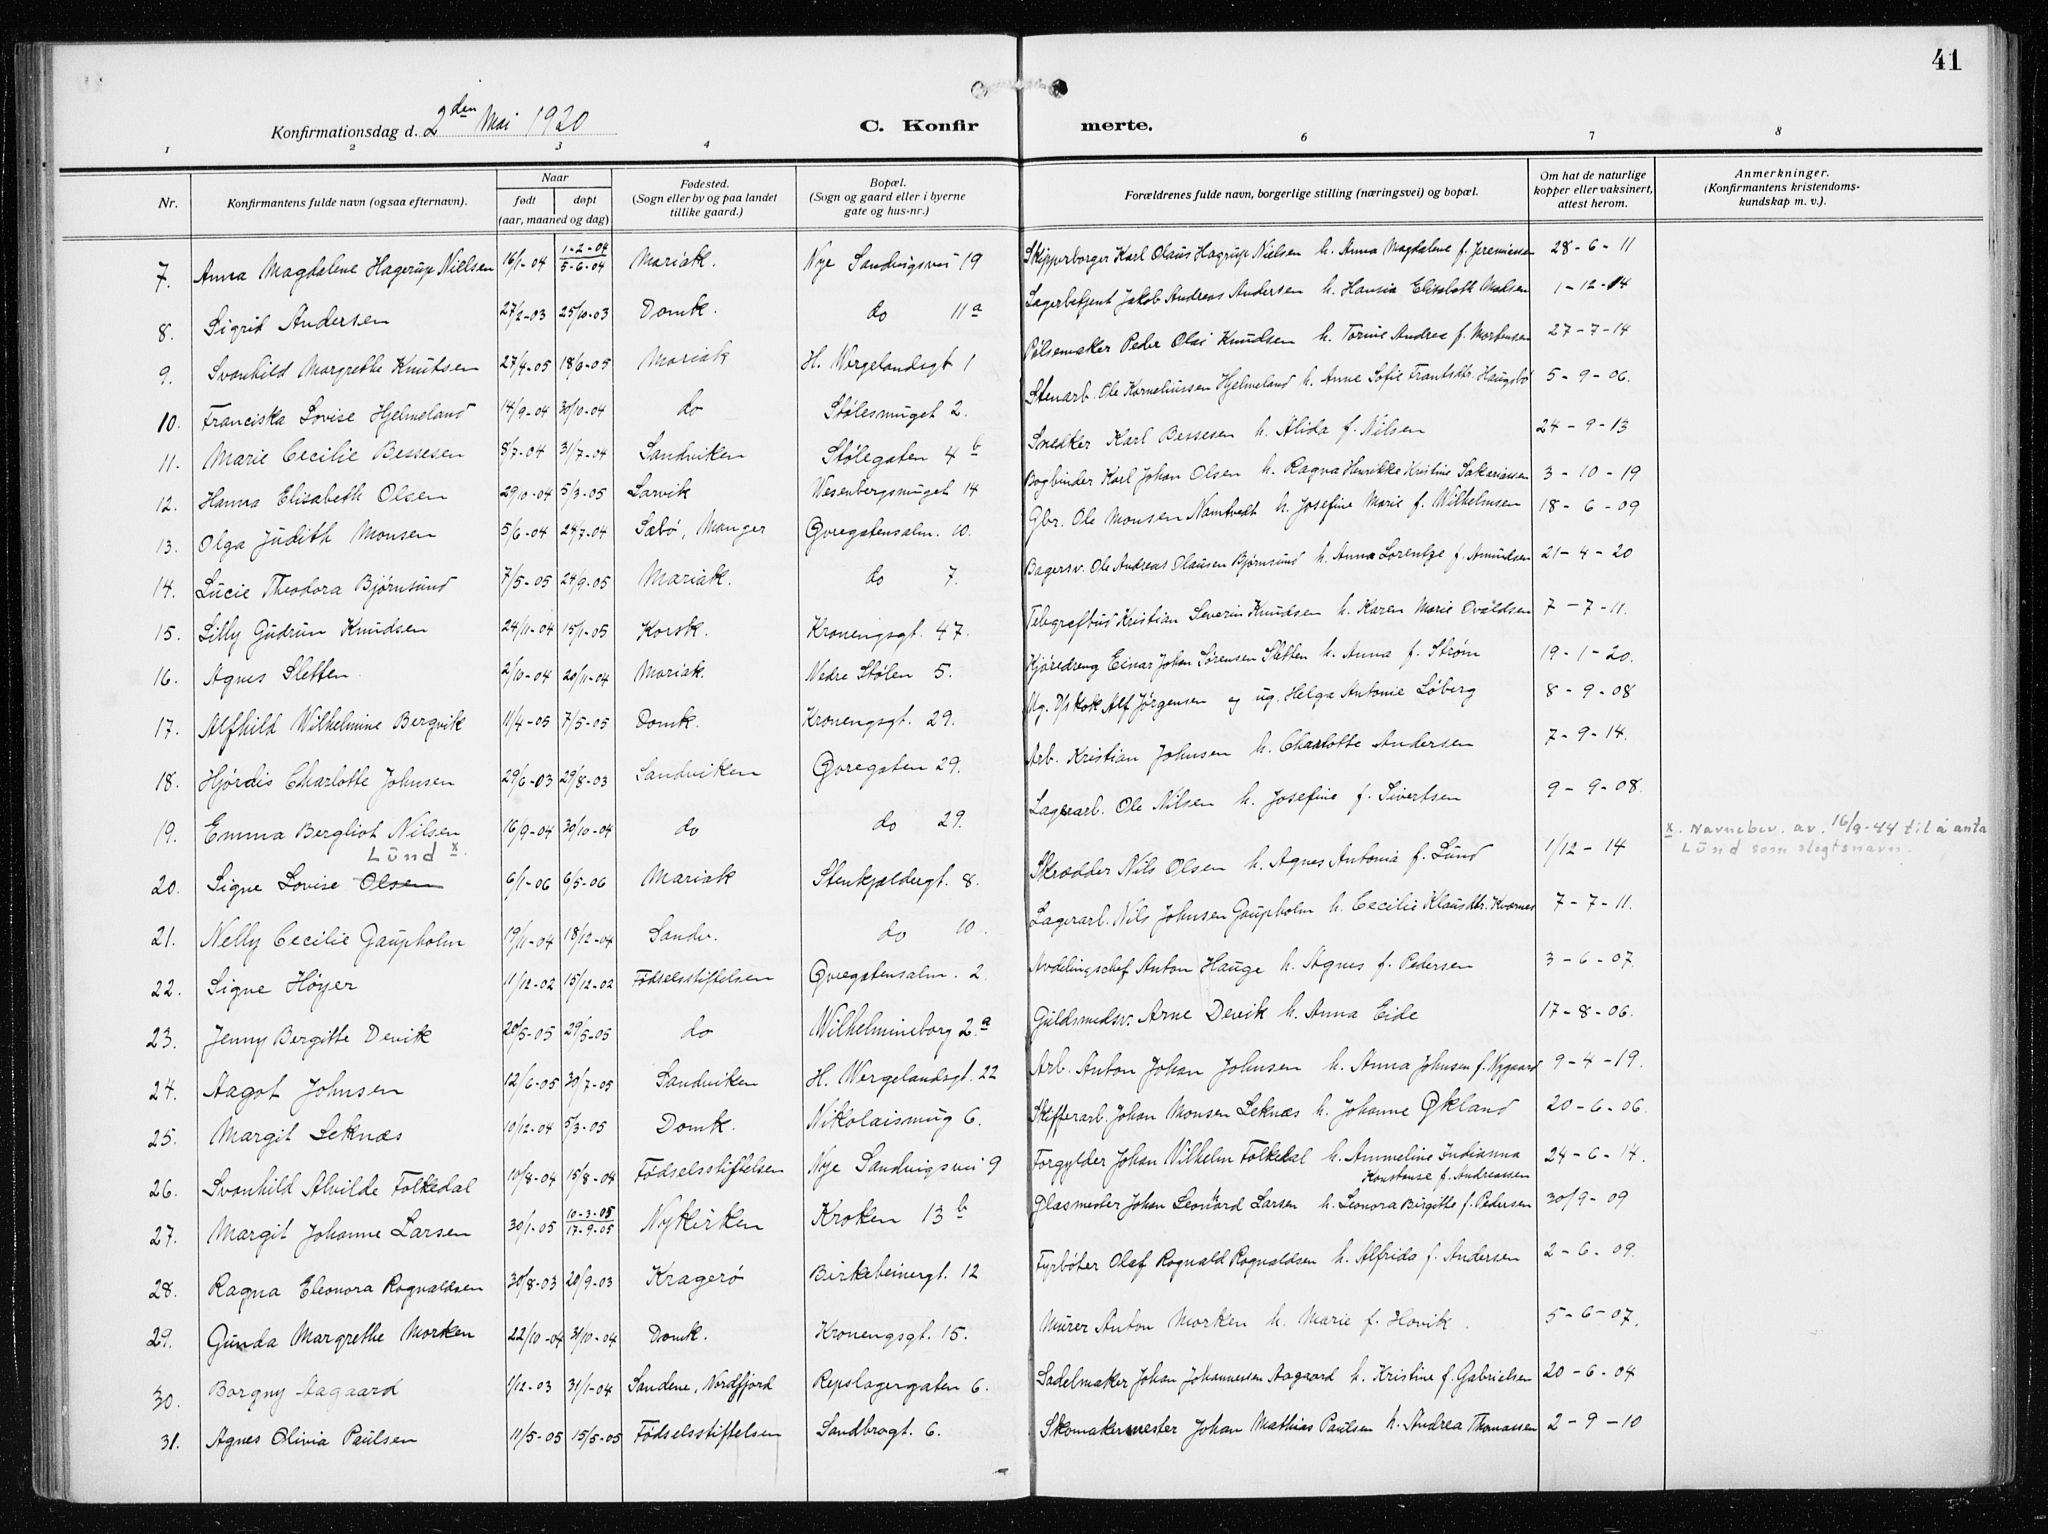 41
Konfirmationsdag d. 2den Mai 1920
C. Konfir merte.
1 2 3 4 6 7 8
Nr. Konfirmantens fulde navn (ogsaa efternavn). Naar født døpt (aar, maaned og dag) Fødested. (Sogn eller by og paa landet tillike gaard.) Bopæl. (Sogn og gaard eller i byerne gate og hus-nr.) Forældrenes fulde navn, borgerlige stilling (næringsvei) og bopæl. Om hat de naturlige kopper eller vaksinert, attest herom. Anmerkninger. (Konfirmantens kristendoms-kundskap m. v.).
7. Anna Magdalene Hagerup Nielsen 16/1-04 1-2-04 5-6-04 Mariak. Nye Sandvigsvei 19 Skipperborger Karl Olaus Hagrup Nielsen h. Anna Magdalene f. Jeremiessen 28-6-11
8. Sigrid Andersen 27/2-03 25/10-03 Domk. do 11a Lagerbetjent Jakob Andreas Andersen h. Hansia Elisabeth Madsen 1-12-14
9. Svanhild Margrethe Knutsen 27/4-05 18/6-05 Mariak H. Wergelandsgt 1 Pølsemaker Peder Olai Knudsen h. Torine Andrea f. Mortensen 27-7-14
10. Franciska Lovise Hjelmeland 14/9-04 30/10-04 do Stølesmuget 2. Stenarb. Ole Korneliussen Hjelmeland h. Anne Sofie Frantsdtr. Haugsbø 5-9-06.
11. Marie Cecilie Bessesen 8/7-04 31/7-04 Sandviken Stølegaten 4b Snedker Karl Bessesen h. Alida f. Nilsen 24-9-13
12. Hanna Elisabeth Olsen 29/10-04 5/3-05 Larvik Wesenbergsmuget 14 Bogbinder Karl Johan Olsen h. Ragna Henrikke Kristine Sakariassen 3-10-19
13. Olga Judith Monsen 5/6-04 24/7-04 Sæbø, Manger Øvregatensalm. 10. Gbr. Ole Monsen Namtvedt h. Josefine Marie f. Wilhelmsen 18-6-09
14. Lucie Theodora Bjørnsund 7/5-05 24/9-05 Mariak. do 7. Bagersv. Ole Andreas Olausen Bjørnsund h. Anna Lorentze f. Amundsen 21-4-20
15. Lilly Gudrun Knudsen 24/11-04 15/1-05 Korsk. Kronengsgt. 47. Telegrafbud Kristian Severin Knudsen h. Karen Marie Ovaldsen 7-7-11.
16. Agnes Sletten 2/10-04 20/11-04 Mariak. Nedre Stølen 5. Kjøredreng Einar Johan Sørensen Sletten h. Anna f. Strøm 19-1-20.
17. Alfhild Wilhelmine Bergvik 11/4-05 7/5-05 Domk. Kronengsgt. 29. Ug. D/s Kok Alf Jørgensen og ug. Helga Antonie Løberg 8-9-08
18. Hjørdis Charlotte Johnsen 29/6-03 29/8-03 Sandviken Øvregaten 29. Arb. Kristian Johnsen h. Charlotte Andersen 7-9-14.
19. Emma Bergliot Nilsen 16/9-04 30/10-04 do do 29. Lagerarb. Ole Nilsen h. Josefine f. Sivertsen 9-9-08.
Lund x
x. Navnebev. av. 16/9-44 til å anta Lund som slegtsnavn.
20. Signe Lovise Olsen 6/1-06 6/5-06 Mariak Stenkjeldergt. 8. Skrædder Nils Olsen h. Agnes Antonia f. Lund 1/12-14
21. Nelly Cecilie Gaupholm 19/11-04 18/12-04 Sandv. do 10. Lagerarb. Nils Johnsen Gaupholm h. Cecilie Klausdtr. Kværnes 7-7-11.
22. Signe Høyer 11/12-02 15/12-02 Fødselsstiftelsen Øvregatensalm. 2. Avdelingschef Anton Hauge h. Agnes f. Pedersen 3-6-07.
23. Jenny Bergitte Devik 20/5-05 29/5-05 do Wilhelmineborg 2.a Guldsmedsv. Arne Devik h. Anna Eide 17-8-06.
24. Aagot Johnsen 12/6-05 30/7-05 Sandviken H. Wergelandsgt. 22 Arb. Anton Johan Johnsen h. Anna Johnsen f. Nygaard 9-4-19.
25. Margit Leknæs 10/12-04 5/3-05 Domk. Nikolaismug 6. Skifferarb. Johan Monsen Leknæs h. Johanne Økland 20-6-06.
26. Svanhild Alvilde Folkedal 10/8-04 15/8-04 Fødselsstiftelsen Nye Sandvigsvei 9 Forgylder Johan Vilhelm Folkedal h. Ammeline Indianna Konstanse f. Andreassen 24-6-14.
27. Margit Johanne Larsen 30/1-05 10-3-05 17-9-05 Nykirken Kroken 13b Glasmester Johan Leonard Larsen h. Leonora Birgitte f. Pedersen 30/9-09
28. Ragna Eleonora Rognaldsen 30/8-03 20/9-03 Kragerø Birkebeinergt. 12 Fyrbøter Olaf Rognald Rognaldsen h. Alfrida f. Andersen 2-6-09.
29. Gunda Margrethe Morken 22/10-04 31/10-04 Domk. Kronengsgt. 15. Murer Anton Morken h. Marie f. Hovik. 5-6-07.
30. Borgny Aagaard 1/12-03 31/1-04 Sandene, Nordfjord Repslagergaten 6. Sadelmaker Johan Johannessen Aagaard h. Kristine f. Gabrielsen 20-6-04
31. Agnes Olivia Paulsen 11/5-05 15/5-05 Fødselsstiftelsen Sandbrogt. 6. Skomakermester Johan Mathias Paulsen h. Andrea Thomassen 2-9-10